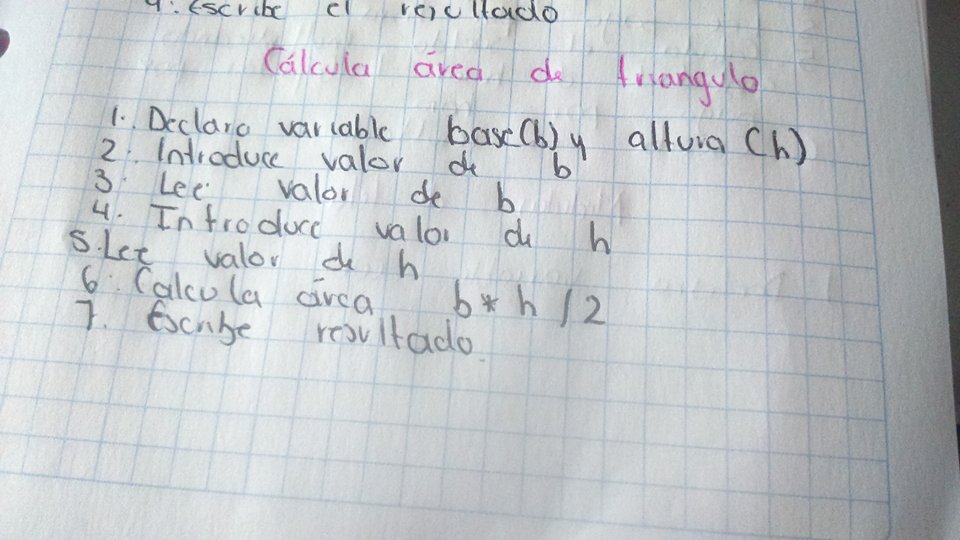 4. Escribe el resultado
Cálcula área de triangulo
1. Declara variable base(b) y altura (h)
2. Introduce valor de b
3. Lee valor de b
4. Introduce valor de h
5. Lee valor de h
6. Calcula área b * h / 2
7. Escribe resultado.